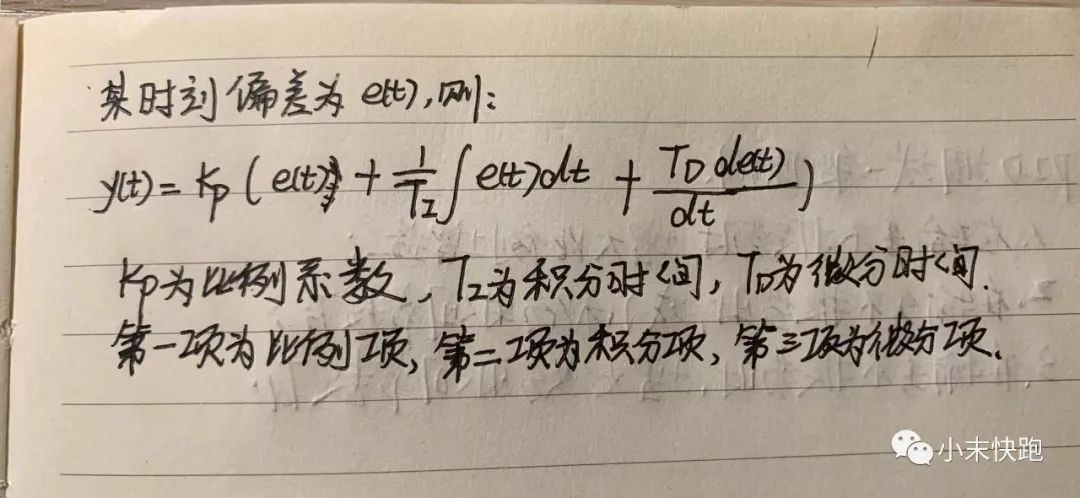 某时刻偏差为 e(t),则:
y(t) = Kp ( e(t) + 1/TI ∫ e(t)dt + TD de(t)/dt )
Kp为比例系数, TI为积分时间, TD为微分时间.
第一项为比例项, 第二项为积分项, 第三项为微分项.
小末快跑